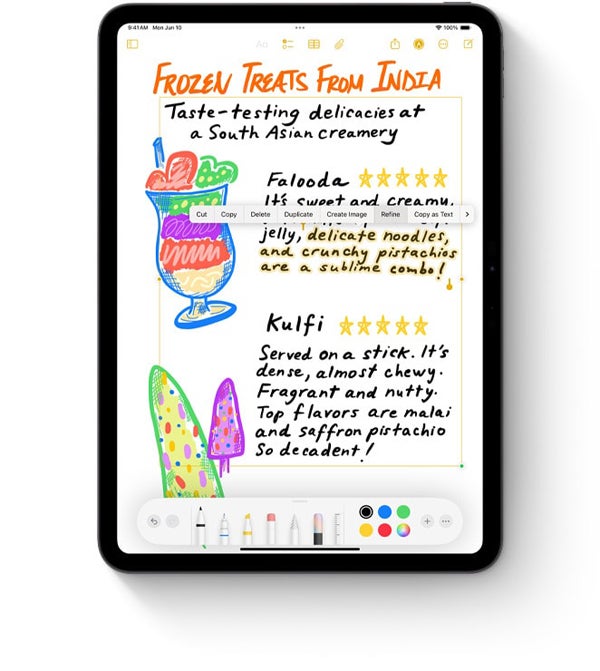 9:41 AM Mon Jun 10
100%
Aa
FROZEN TREATS FROM INDIA
Taste-testing delicacies at
a South Asian creamery
Falooda
It's sweet and creamy,
Cut Copy Delete Duplicate Create Image Refine Copy as Text
jelly, delicate noodles,
and crunchy pistachios
are a sublime combo!
Kulfi
Served on a stick. It's
dense, almost chewy.
Fragrant and nutty.
Top flavors are malai
and saffron pistachio
So decadent!